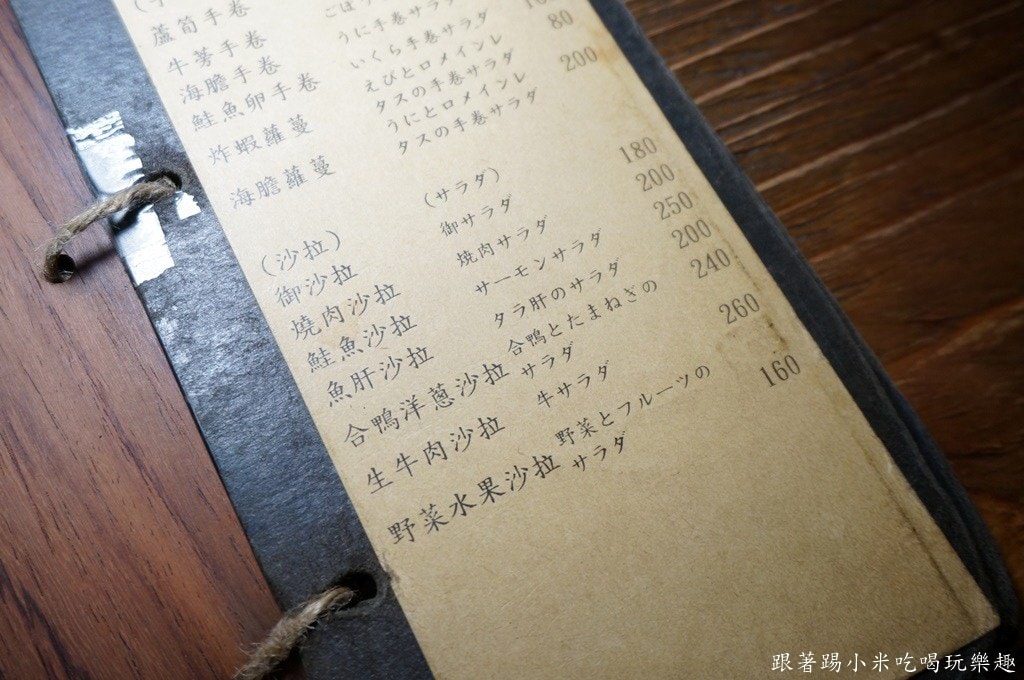 蘆筍手卷
牛蒡手卷 ごぼう
海膽手卷 うに手卷サラダ
鮭魚卵手卷 いくら手卷サラダ
炸蝦蘿蔓 えびとロメインレ 80
タスの手卷サラダ
海膽蘿蔓 うにとロメインレ 200
タスの手卷サラダ
(沙拉) (サラダ)
御沙拉 御サラダ 180
燒肉沙拉 燒肉サラダ 200
鮭魚沙拉 サーモンサラダ 250
魚肝沙拉 タラ肝のサラダ 200
合鴨洋蔥沙拉 合鴨とたまねぎの 240
サラダ
生牛肉沙拉 牛サラダ 260
野菜水果沙拉 野菜とフルーツの 160
サラダ
跟著踢小米吃喝玩樂趣